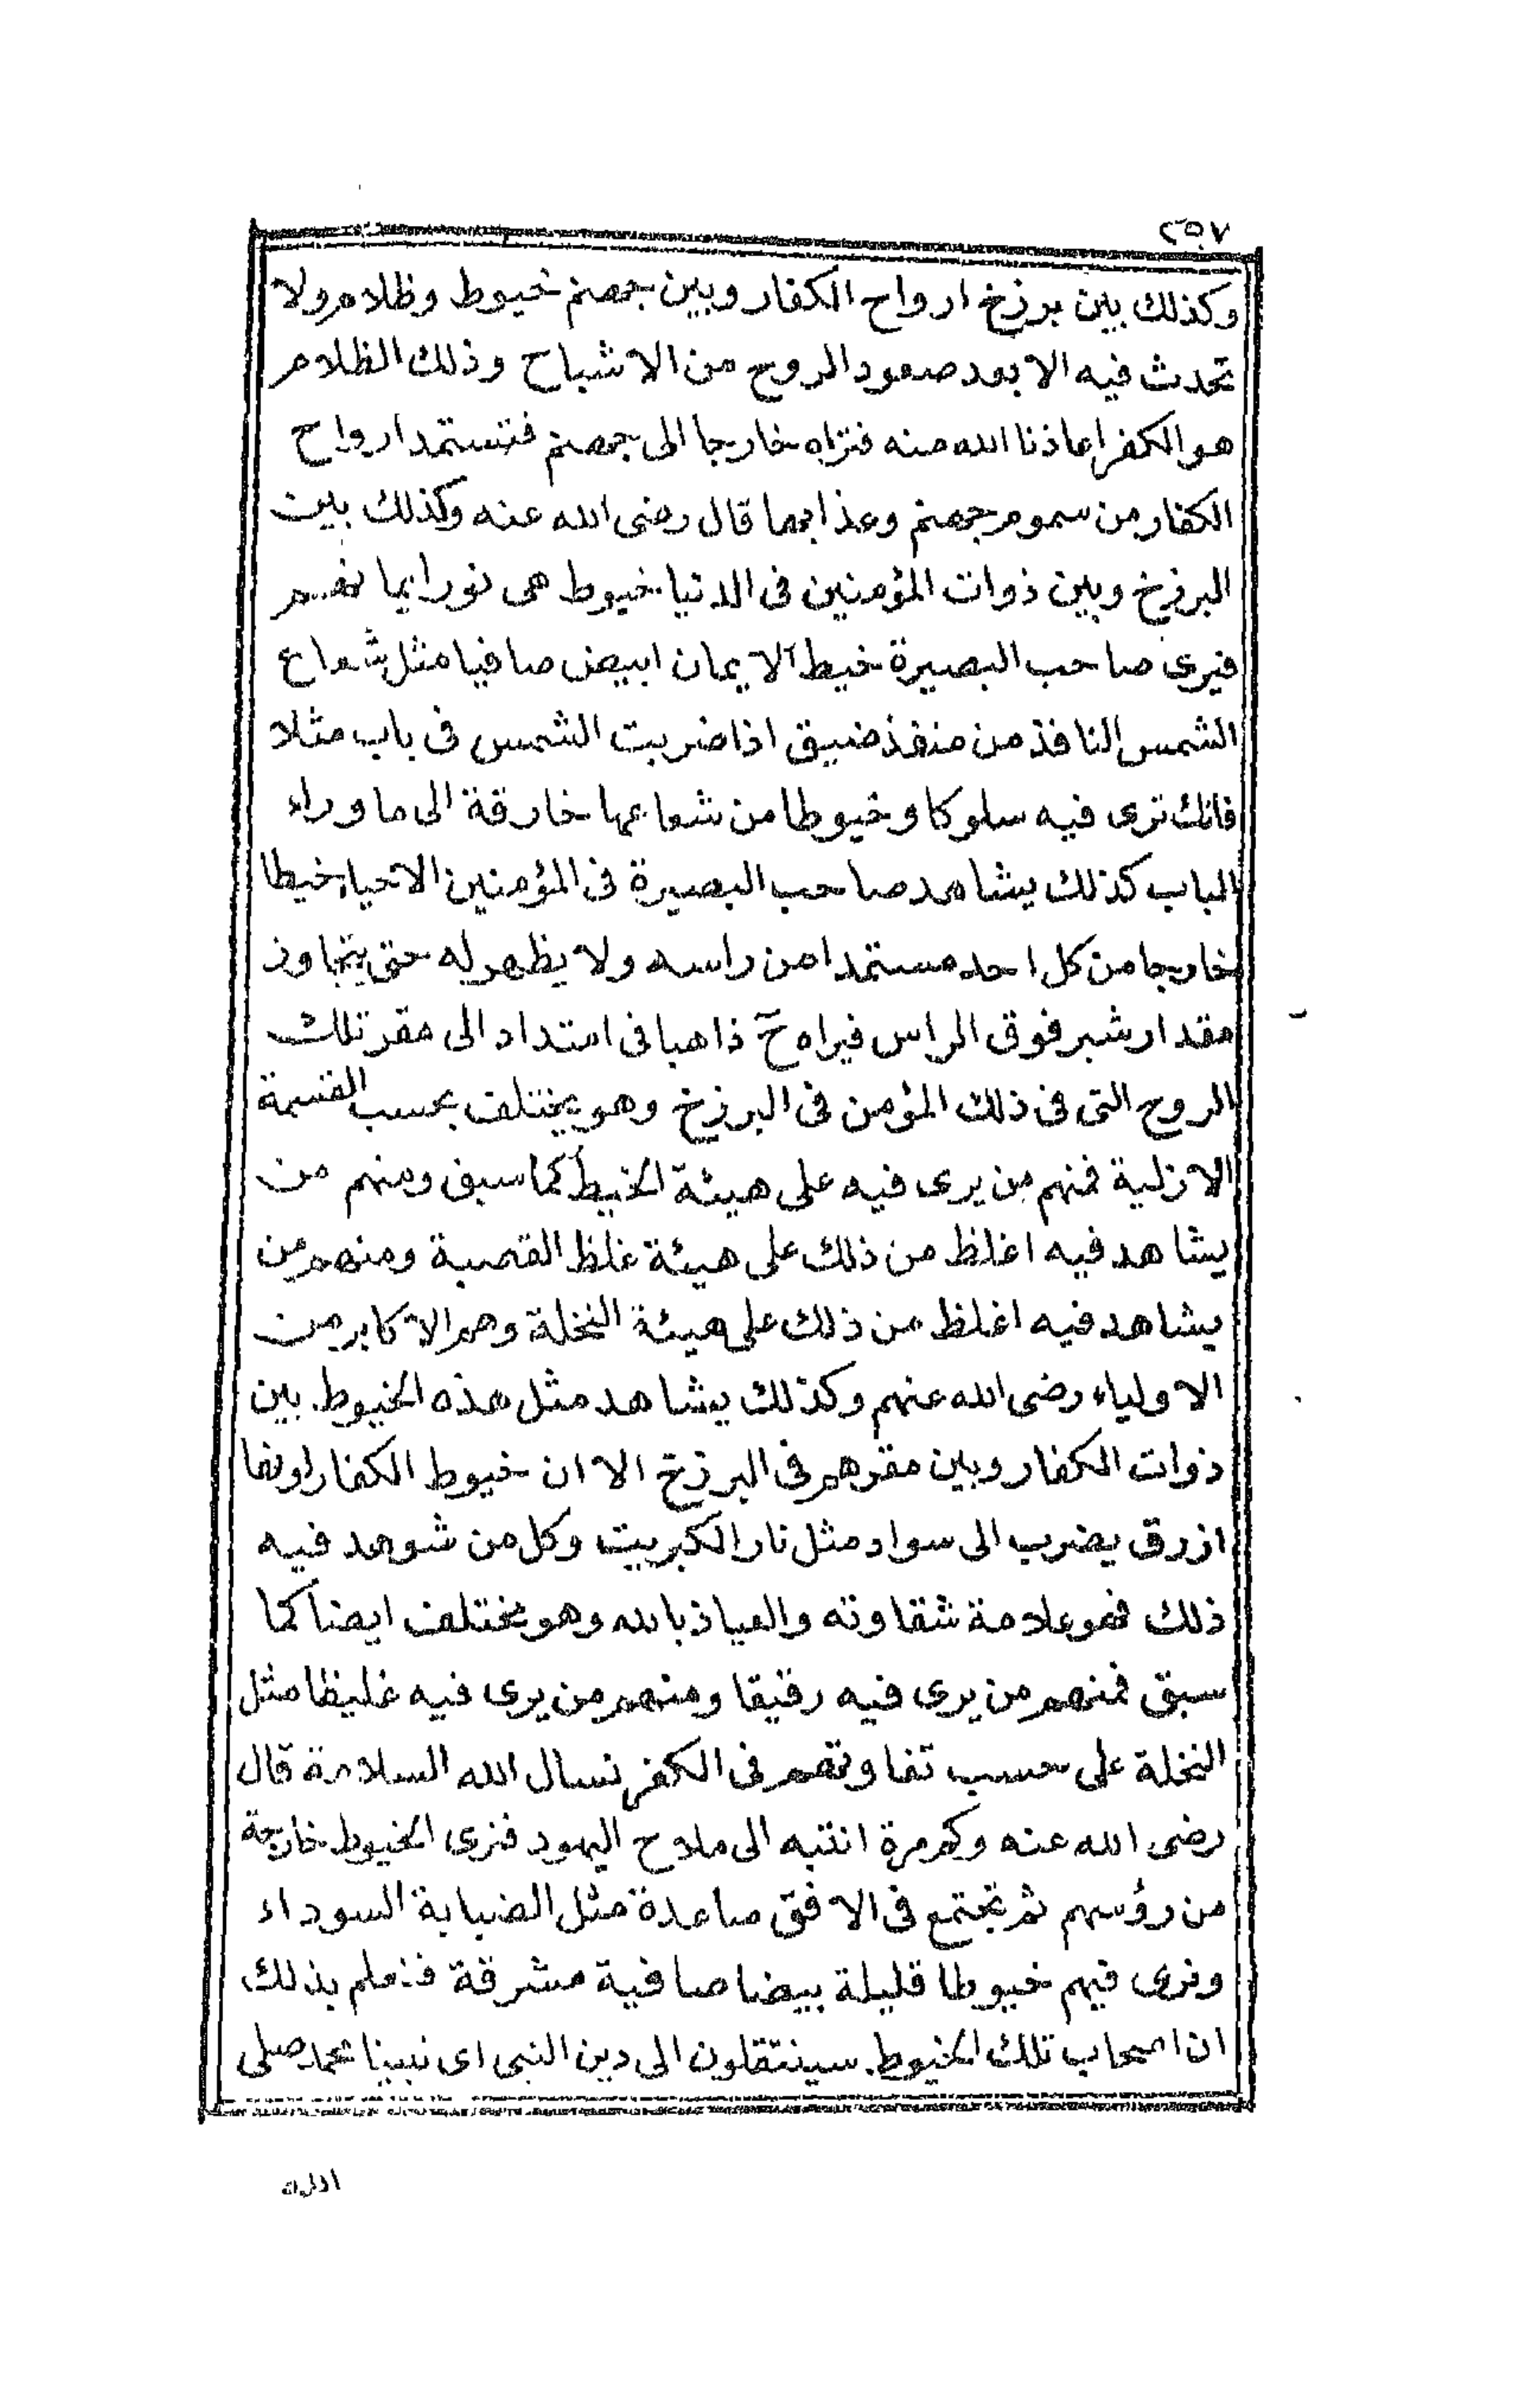 ٢٥٧
وكذلك بين برزخ ارواح الكفار وبين جهنم خيوط وظلام ولا
تحدث فيه الا بعد صعود الروح من الاشباح وذلك الظلام
هو الكفر اعاذنا الله منه فتراه خارجا الى جهنم فتستمد ارواح
الكفار من سموم جهنم وعذابها قال رضى الله عنه وكذلك بين
البرزخ وبين ذوات المؤمنين فى الدنيا خيوط هى نور ايمانهم
فيرى صاحب البصيرة خيط الايمان ابيض صافيا مثل شعاع
الشمس النافذ من منفذ ضيق اذا ضربت الشمس فى باب مثلا
فانك ترى فيه سلوكا وخيوطا من شعاعها خارقة الى ما وراء
الباب كذلك يشاهد صاحب البصيرة فى المؤمنين الاحياء خيطا
خارجا من كل احد مستمدا من راسه ولا يظهر له حتى يتجاوز
مقدار شبر فوق الراس فيراه ح ذاهبا فى امتداد الى مقر تلك
الروح التى فى ذلك المؤمن فى البرزخ وهو يختلف بحسب القسمة
الازلية فمنهم من يرى فيه على هيئة الخيط كما سبق ومنهم من
يشاهد فيه اغلظ من ذلك على هيئة غلظ القصبة ومنهم من
يشاهد فيه اغلظ من ذلك على هيئة النخلة وهم الاكابر من
الاولياء رضى الله عنهم وكذلك يشاهد مثل هذه الخيوط بين
ذوات الكفار وبين مقرهم فى البرزخ الا ان خيوط الكفار لونها
ازرق يضرب الى سواد مثل نار الكبريت وكل من شوهد فيه
ذلك فهو علامة شقاوته والعياذ بالله وهو مختلف ايضا كما
سبق فمنهم من يرى فيه رقيقا ومنهم من يرى فيه غليظا مثل
النخلة على حسب تفاوتهم فى الكفر نسال الله السلامة قال
رضى الله عنه وكم مرة انتبه الى ملاح اليهود فنرى الخيوط خارجة
من رؤسهم ثم تجتمع فى الافق صاعدة مثل الضبابة السوداء
ونرى فيهم خيوطا قليلة بيضا صافية مشرقة فنعلم بذلك
ان اصحاب تلك الخيوط سينتقلون الى دين النبى اى نبينا محمد صلى
الله